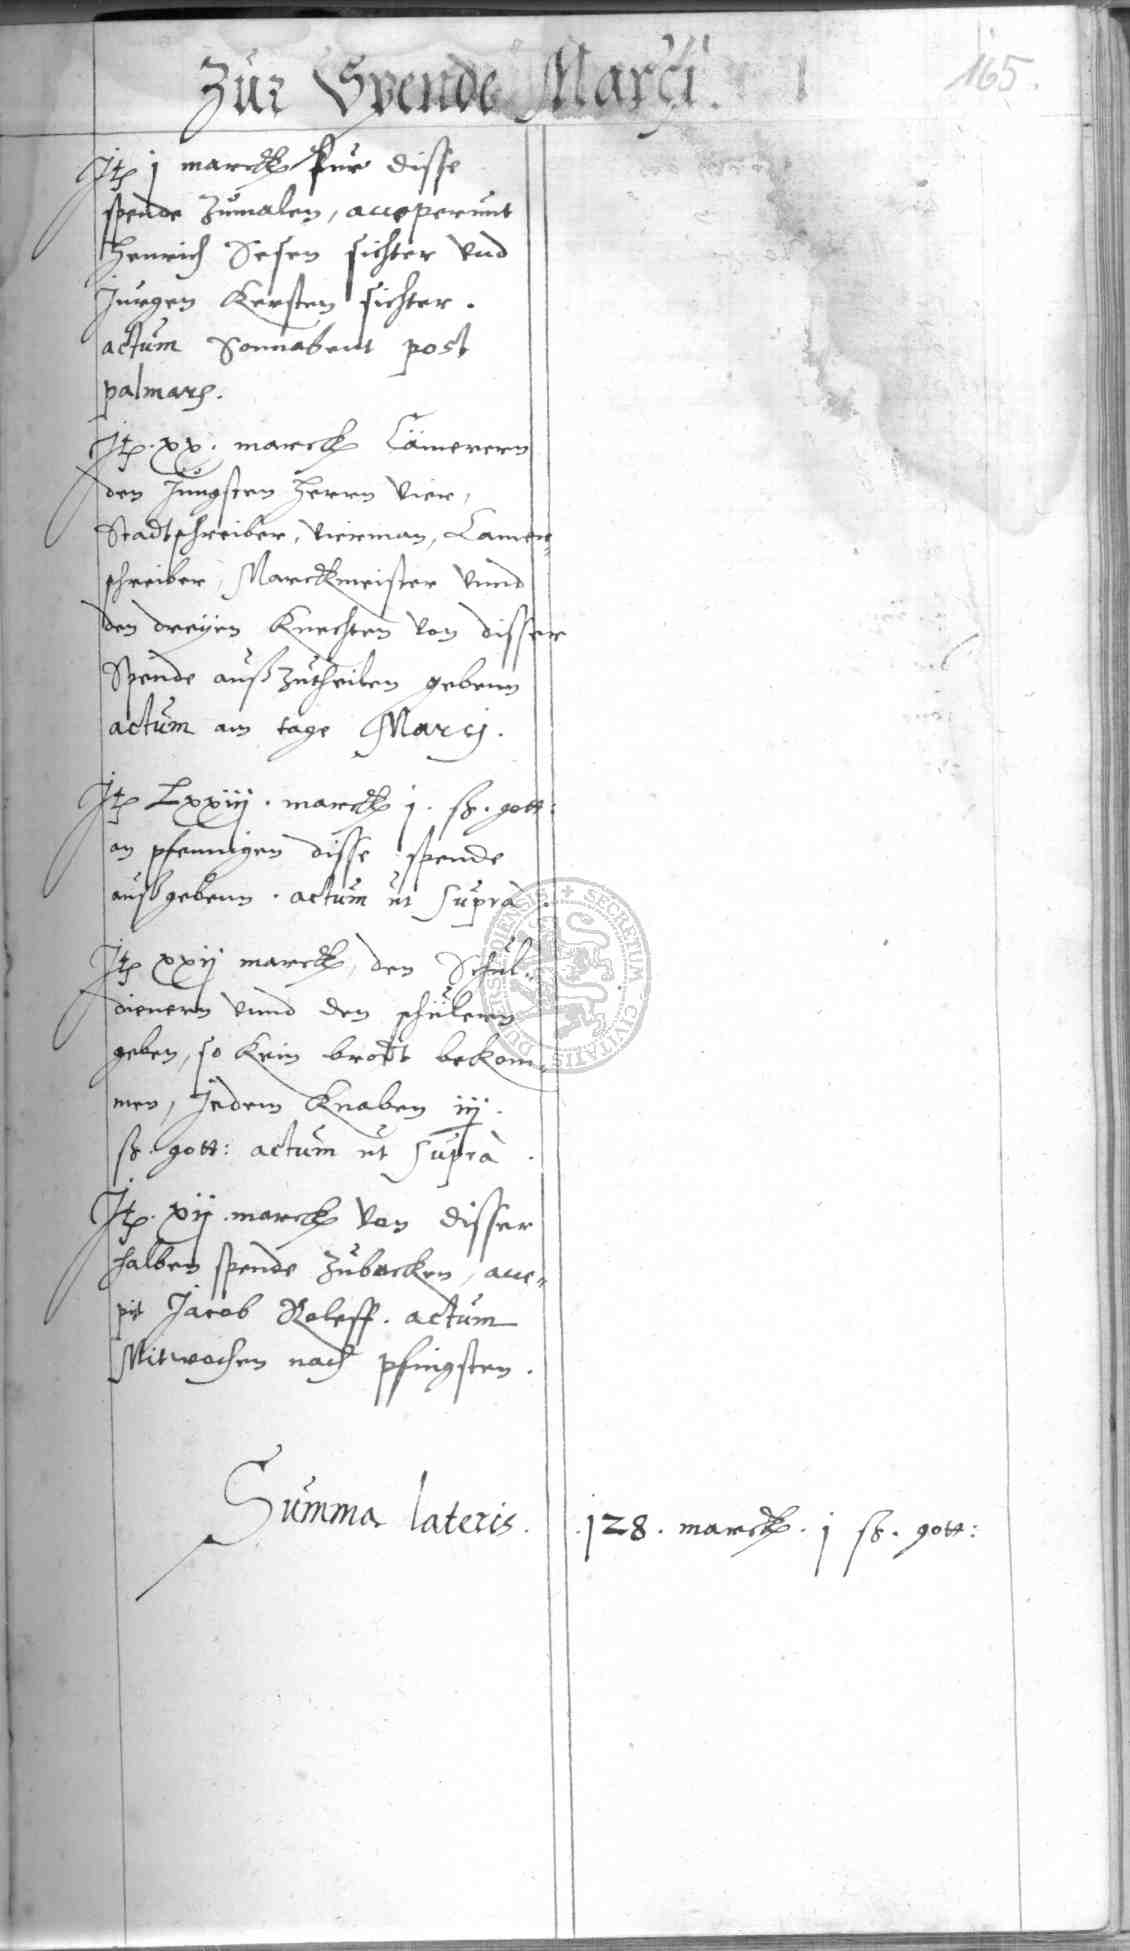 165.
Zur Spende Marci.
Itē j marck fur disse
spende Zumalen, acceperunt
Henrich Sesen sichter vnd
Jurgen Kersten sichter.
actum Sonnabent post
palmarū.
Itē. xx. marck Cämerern
den Jungsten Herrn vier,
Stadtschreiber, vierman, Camer=
schreiber, Marckmeister vnnd
den dreyen Knechten von disser
Spende außzutheilen gebenn
actum am tage Marcj.
Itē Lxxiij. marck j. ß. gott:
an pfennigen disse spende
außgebenn. actum ut supra.
Itē xxij marck, den Schul=
dienern vnnd den schulern
geben, so kein brodt bekom=
men, Jedem Knaben iij.
ß. gott: actum ut supra.
Itē. xij. marck von disser
halben spende Zubacken, acce=
pit Jacob Roleff. actum
Mitwochen nach pfingsten.
Summa lateris. .j28. marck. j ß. gott:
SECRETUM CIVITATIS DUDERSTADIENSIS